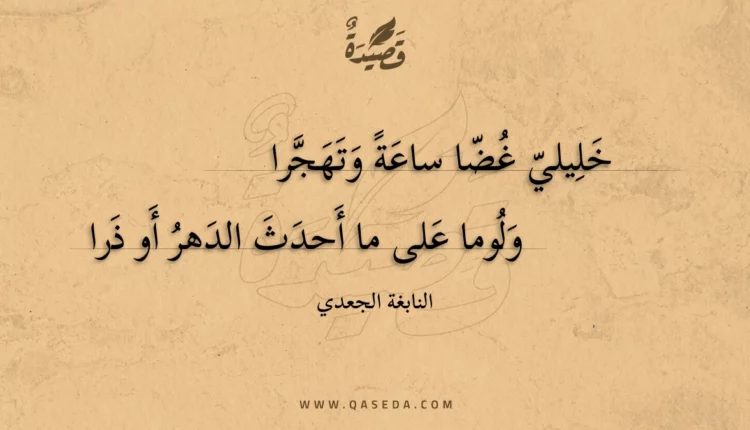 قَصِيْدَةٌ
خَلِيليّ غُضّا ساعَةً وَتَهَجَّرا
وَلُوما عَلى ما أَحدَثَ الدَهرُ أَو ذَرا
النابغة الجعدي
WWW.QASEDA.COM